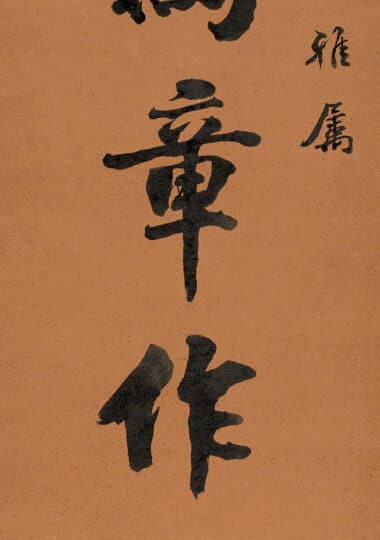 雅属
章作